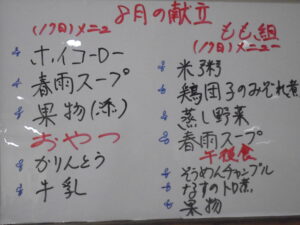 8月の献立
(17日)メニュー
ホイコーロー
春雨スープ
果物(添)
おやつ
かりんとう
牛乳
もも組
(17日)メニュー
米粥
鶏団子のみぞれ煮
蒸し野菜
春雨スープ
午後食
そうめんチャンプル
なすのトロ煮
果物